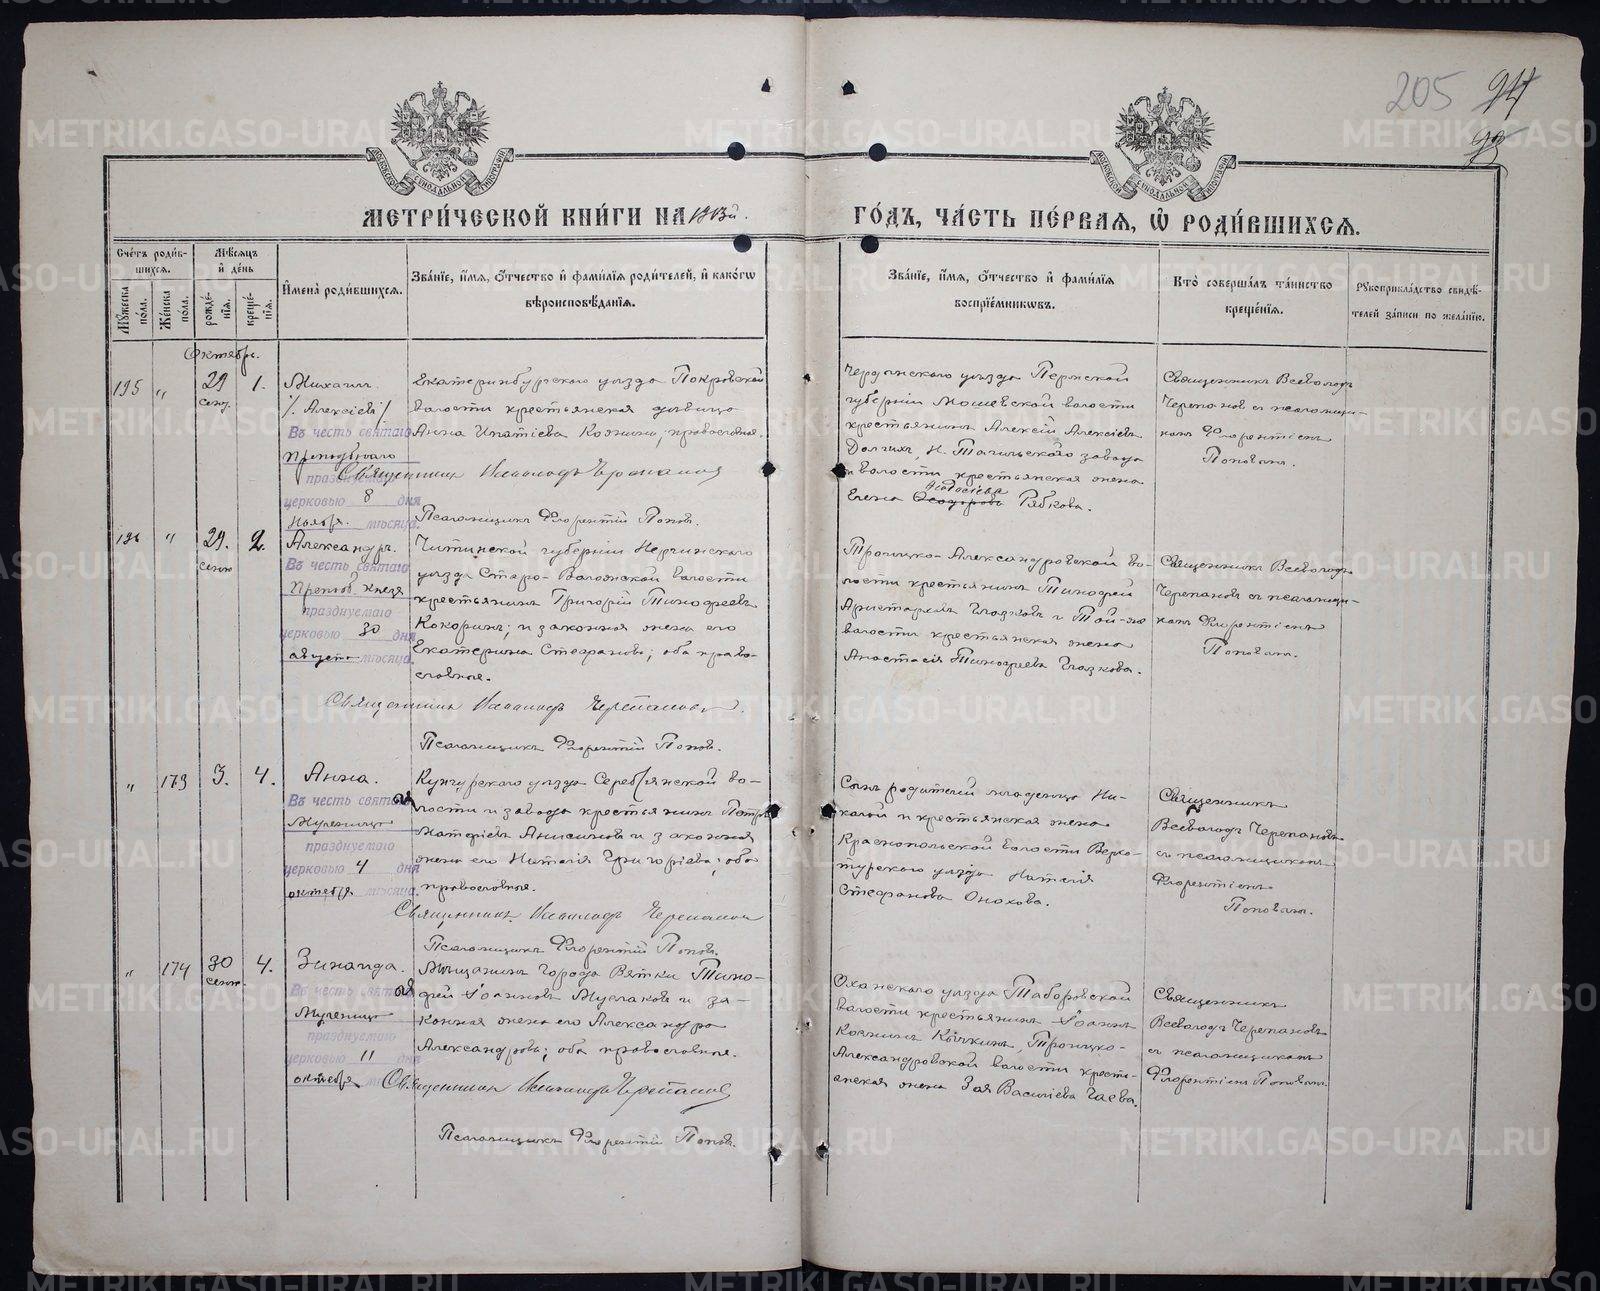 205 94
93
МОСКОВСКОЙ СѶНОДАЛЬНОЙ ТИПОГРАФІИ
МОСКОВСКОЙ СѶНОДАЛЬНОЙ ТИПОГРАФІИ
МЕТРИ́ЧЕСКОЙ КНИ́ГИ НА 1913й.
ГО́ДЪ, ЧА́СТЬ ПЕ́РВАѦ, Ѡ҆ РОДИ́ВШИХСѦ.
Сче́тъ роди́в-
шихсѧ.
Мꙋжеска по́ла.
Же́нска по́ла.
Мѣ́сѧцъ
и҆ де́нь
рожде́-
нїѧ.
креще́-
нїѧ.
И҆мена̀ роди́вшихсѧ.
Зва́нїе, и҆́мѧ, ѻ҆́тчество и҆ фами́лїѧ роди́телей, и҆ како́гѡ
вѣроисповѣ́данїѧ.
Зва́нїе, и҆́мѧ, ѻ҆́тчество и҆ фами́лїѧ
воспрїе́мникѡвъ.
Кто̀ соверша́лъ та́инство
креще́нїѧ.
Рꙋкоприкла́дство свидѣ́-
телей за́писи по жела́нїю.
Октябрь.
195 " 29 1.
сент.
Михаилъ
/Алексіевъ/
Въ честь святаго
Преподобнаго
празднуемаго
церковью 8 дня
Ноября. мѣсяца.
Екатеринбургскаго уѣзда Покровской
волости крестьянская дѣвица
Анна Ипатіева Коэкина, православная.
Священникъ Всеволодъ Черепановъ
Псаломщикъ Флорентій Поповъ.
Чердынскаго уѣзда Пермской
губерніи Мошевской волости
крестьянинъ Алексій Алексіевъ
Долгихъ, Н. Тагильскаго завода
и волости крестьянская жена
Елена Рябкова.
Священникъ Всеволодъ
Черепановъ съ псаломщи-
комъ Флорентіемъ
Поповымъ.
196 " 29. 2.
сент
Александръ.
Въ честь святаго
Препод. князя
празднуемаго
церковью 30 дня
августа мѣсяца.
Читинской губерніи Нерчинскаго
уѣзда Старо- волости
крестьянинъ Григорій Тимофеевъ
Кокоринъ; и законная жена его
Екатерина Стефанова; оба право-
славные.
Священникъ Всеволодъ Черепановъ.
Псаломщикъ Флорентій Поповъ.
Троицко-Александровской во-
лости крестьянинъ Тимофей
Аристарховъ Глазковъ и Той-же
волости крестьянская жена
Анастасія Тимофеева Глазкова.
Священникъ Всеволодъ
Черепановъ съ псаломщи-
комъ Флорентіемъ
Поповымъ.
" 173 3. 4.
Анна.
Въ честь святыя
Мученицы
празднуемаго
церковью 4 дня
октября мѣсяца.
Кунгурскаго уѣзда Серебрянской во-
лости и завода крестьянинъ Петръ
Матфіевъ Анисимовъ и законная
жена его Наталія Григоріева; оба
православные.
Священникъ Всеволодъ Черепановъ
Псаломщикъ Флорентій Поповъ.
Сынъ родителей младенца Ни-
колай и крестьянская жена
Краснопольской волости Верхо-
турскаго уѣзда Наталія
Стефанова Онохова.
Священникъ
Всеволодъ Черепановъ
съ псаломщикомъ
Флорентіемъ
Поповымъ.
" 174 30 4.
сент.
Зинаида.
Въ честь святыя
Мученицы
празднуемаго
церковью 11 дня
октября мѣсяца
Мѣщанинъ города Вятки Тимо-
фей Іоанновъ Муслаковъ и за-
конная жена его Александра
Александрова; оба православные.
Священникъ Всеволодъ Черепановъ
Псаломщикъ Флорентій Поповъ.
Оханскаго уѣзда Таборовской
волости крестьянинъ Іоаннъ
Козминъ Кычкинъ, Троицко-
Александровской волости кресть-
янская жена Зоя Василіева Гаева.
Священникъ
Всеволодъ Черепановъ
съ псаломщикомъ
Флорентіемъ Поповымъ
METRIKI.GASO-URAL.RU